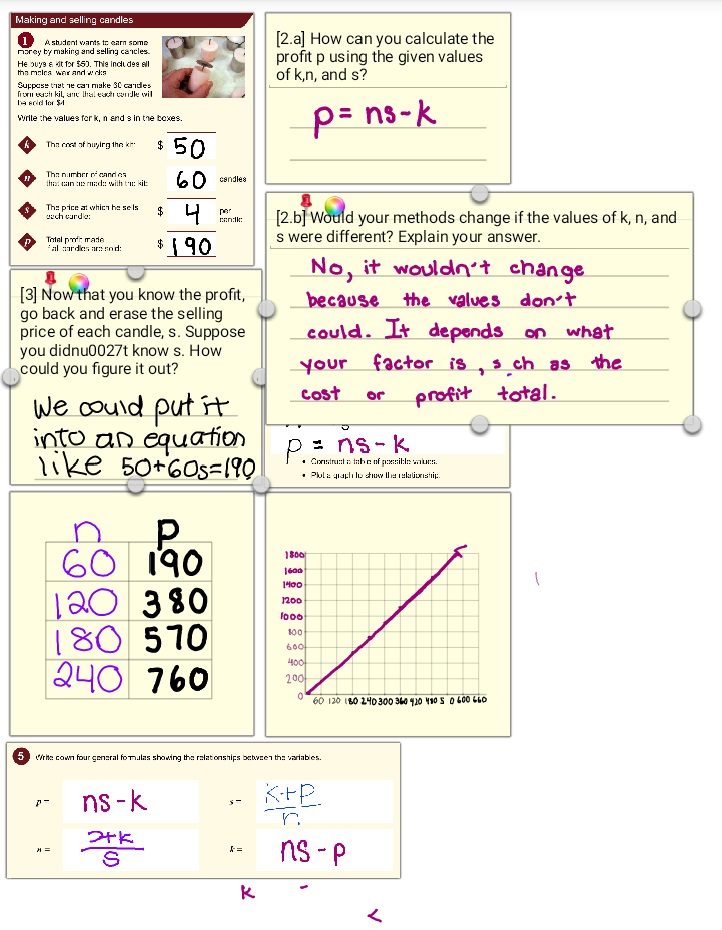 Making and selling candles
1 A student wants to earn some
money by making and selling candles.
He buys a kit for $50. This includes all
the molds, wax and wicks
Suppose that he can make 60 candles
from each kit, and that each candle will
be sold for $4
Write the values for k, n and s in the boxes.
k The cost of buying the kit: $ 50
n The number of candles
that can be made with the kit: 60 candles
s The price at which he sells
each candle: $ 4 per
candle
p Total profit made
if all candles are sold: $ 190
[2.a] How can you calculate the
profit p using the given values
of k,n, and s?
p= ns-k
[2.b] Would your methods change if the values of k, n, and
s were different? Explain your answer.
No, it wouldn't change
because the values don't
could. It depends on what
your factor is, s ch as the
cost or profit total.
[3] Now that you know the profit,
go back and erase the selling
price of each candle, s. Suppose
you didnu0027t know s. How
could you figure it out?
We could put it
into an equation
like 50+60s=190
p = ns-k
• Construct a table of possible values.
• Plot a graph to show the relationship.
n p
60 190
120 380
180 570
240 760
1800
1600
1400
1200
1000
800
600
400
200
0
60 120 180 240 300 360 420 480 5 0 600 660
5 Write down four general formulas showing the relationships between the variables.
p = ns-k
s = k+p
n
n = +k
S
k = ns-p
k -
<